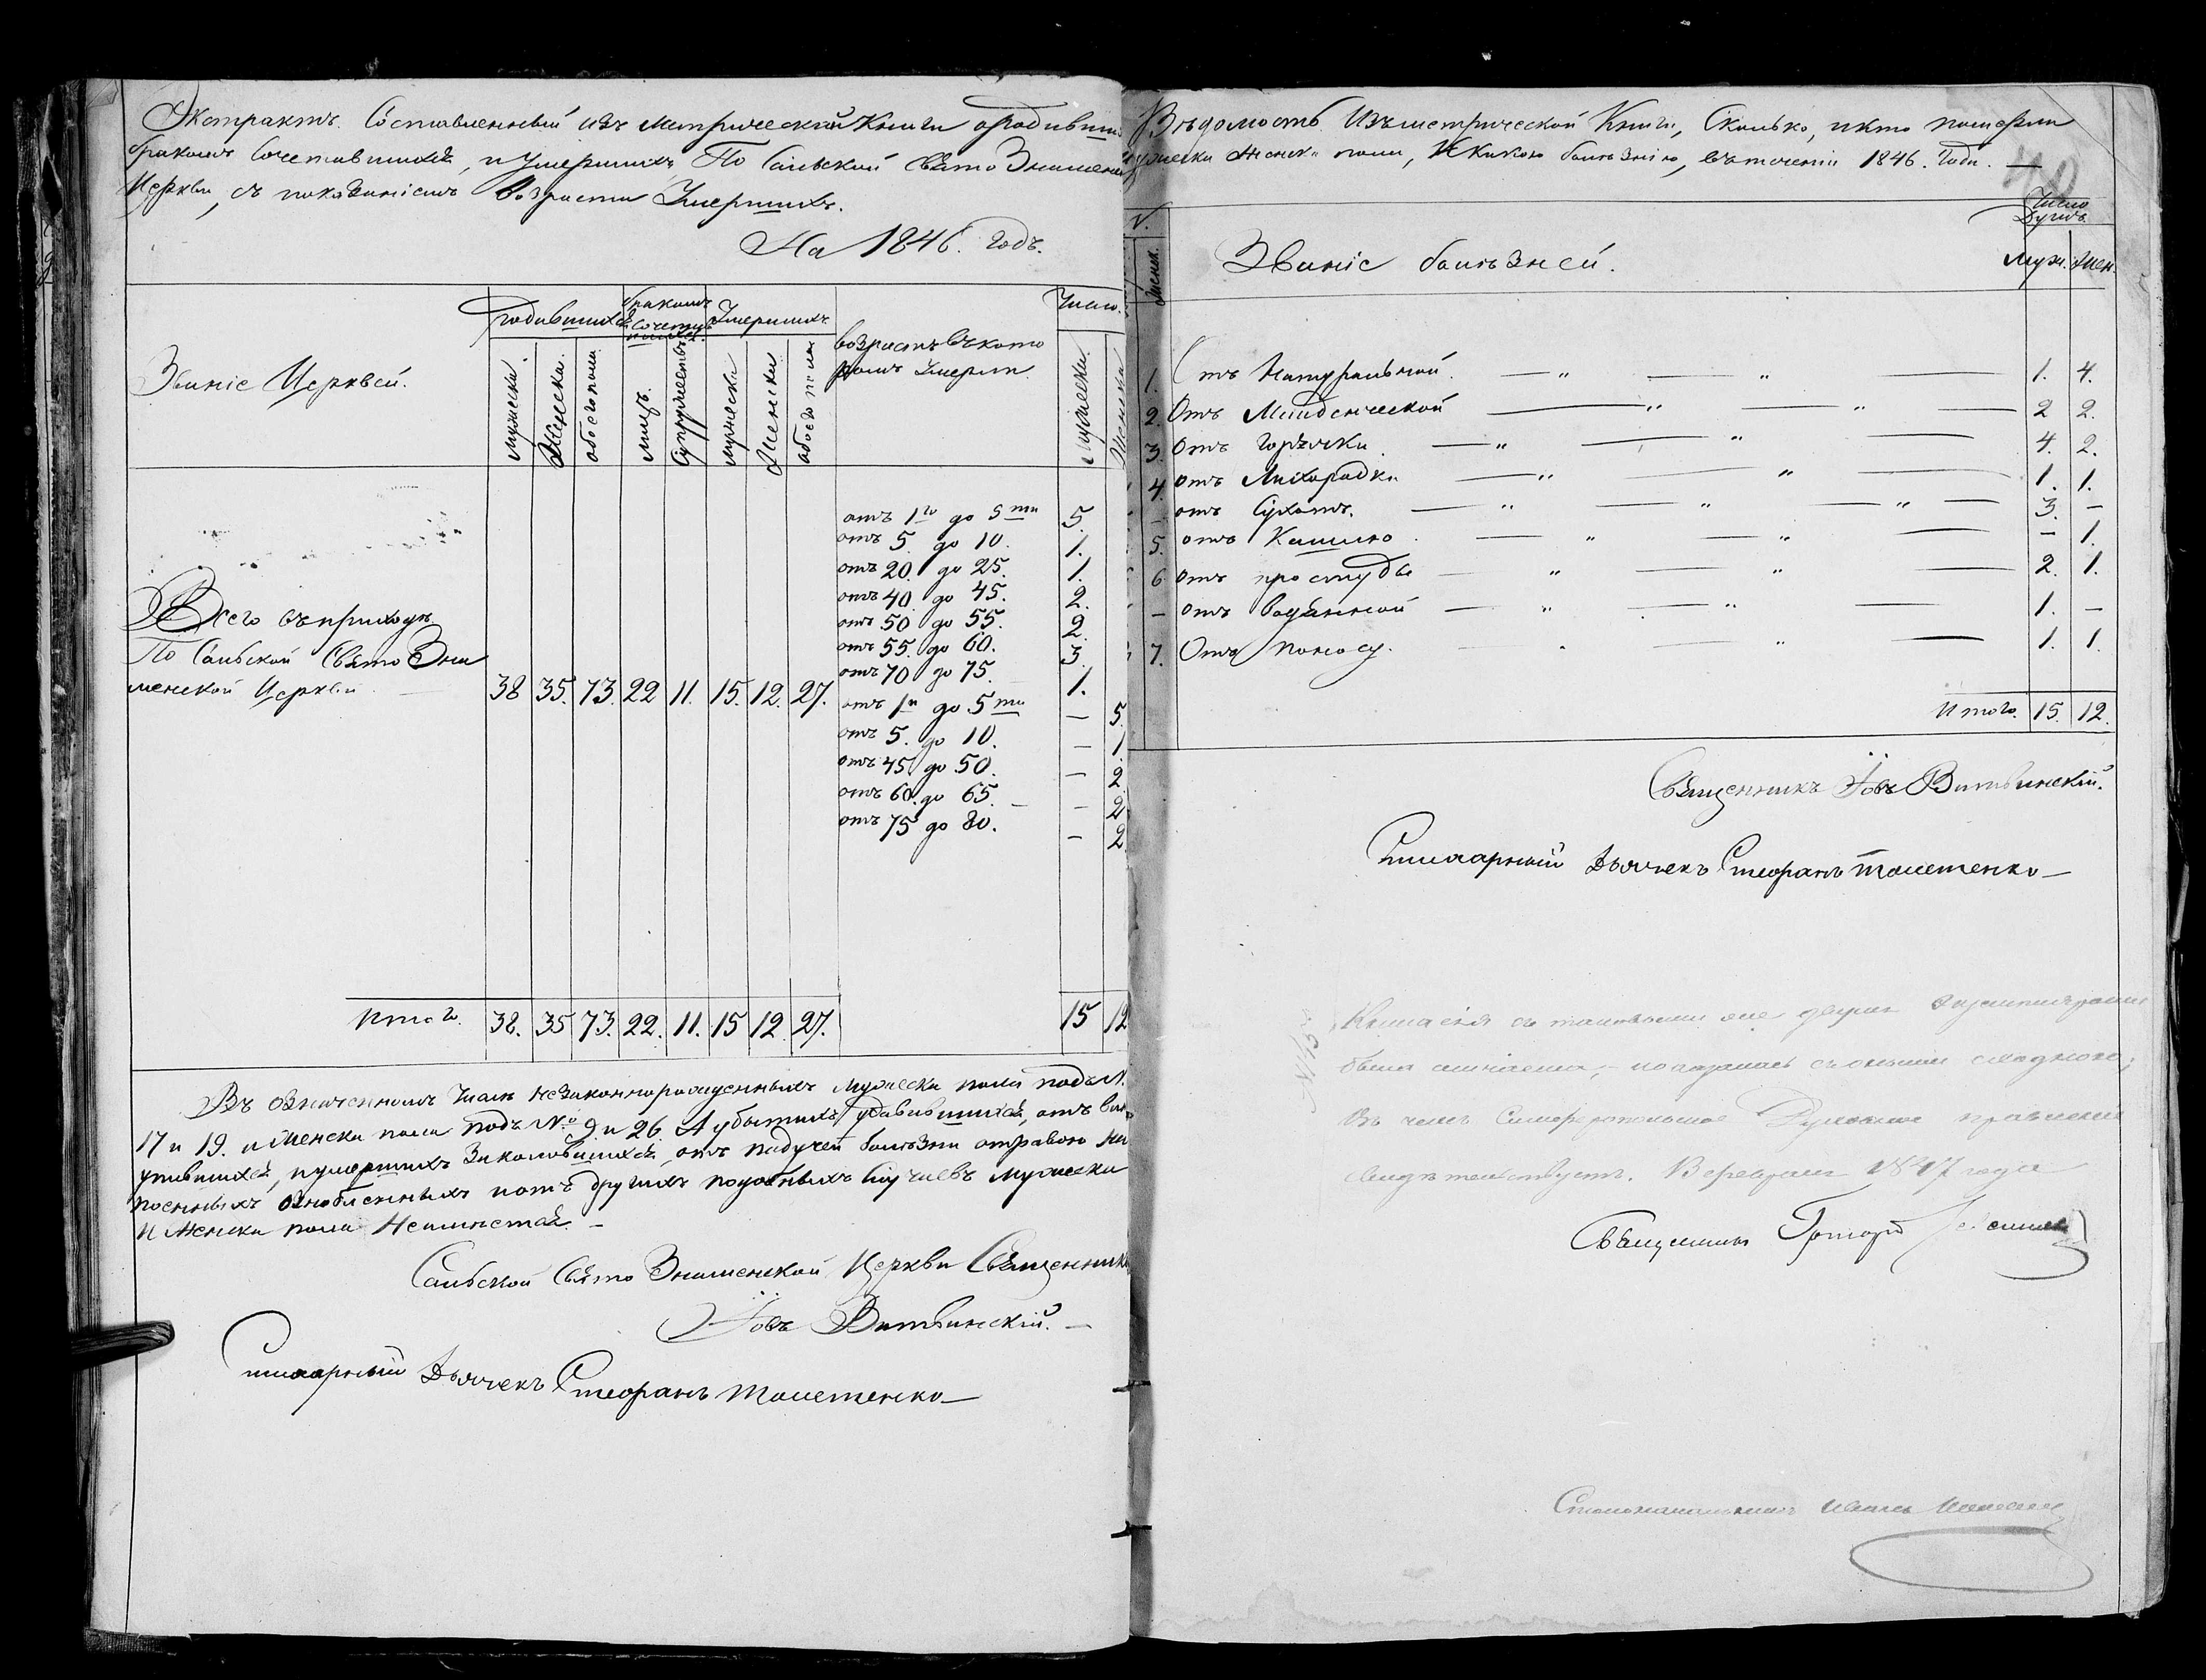 Экстрактъ Составленный изъ Метрической Книги о родивши
бракомъ Сочетавшихся, и Умершихъ По Саибской Свято Знаменс
Церкви, съ показаніемъ Возраста Умершихъ.
На 1846. годъ.
Званіе Церквей.
родившихся
бракомъ сочетавшихся.
Умершихъ
возрастъ въ кото
ромъ Умерли
Число.
мужеска.
Женска.
обоего пола
лицъ.
Супружествъ
мужеска
Женска
обоего пола
Мужеска.
Женска
отъ 1го до 5ти 5.
отъ 5. до 10. 1.
отъ 20. до 25. 1.
отъ 40. до 45. 2.
отъ 50 до 55. 2.
отъ 55. до 60. 3.
отъ 70 до 75. 1.
отъ 1го до 5ти — 5.
отъ 5. до 10. — 1.
отъ 45 до 50. — 2
отъ 60. до 65. — 2
отъ 75 до 80. — 2.
Всего въ приходѣ
По Саибской Свято Зна
менской Церкви 38 35. 73. 22 11. 15. 12. 27.
Итого. 38. 35 73. 22. 11. 15 12. 27. 15 12
Въ означенномъ числѣ незаконнорожденныхъ мужеска пола подъ N.
17 и 19. и Женска пола подъ No 9 и 26. А убитыхъ, удавившихся, отъ вина
упившихся, и умершихъ Заколовшихся, отъ падучей болѣзни отравою на
поенныхъ ознобленныхъ и отъ другихъ подобныхъ случаевъ мужеска
и Женска пола Неимѣется. —
Саибской Свято Знаменской Церкви Священникъ
Іовъ Витвинскій. —
Пономарный Дьячекъ Стефанъ —
Вѣдомость Изъ метрической Книги, Сколько, и кто померли
мужеска Женска пола, И какою болѣзнію, въ теченіи 1846. Года. —
N.
Женск.
Званіе болѣзней.
Число Душъ.
Муж. Жен.
1. Отъ Натуральной. — „ — „ — 1. 4.
2. Отъ Младенческой — „ — „ — 2 2.
3. Отъ Горячки — „ — „ — 4. 2.
4. отъ Лихорадки — „ — „ — 1. 1.
— отъ Сухотъ. — „ — „ — „ — 3. —
5. отъ Кашлю — „ — „ — — 1.
6 Отъ простуды — „ — „ — 2. 1.
— отъ Водянной — „ — „ — 1. —
7. Отъ Поносу. — „ — 1. 1.
Итого. 15. 12.
Священникъ Іовъ Витвинскій.
Пономарный Дьячекъ Стефанъ —
Книга сія съ таковыми же двумя экземплярами
была сличаема, — и оказалась съ оными сходною;
въ чемъ Симферопольское Духовное правленіе
свидѣтельствуетъ. Февраля 1847 года
Священникъ
Столоначальникъ Иванъ